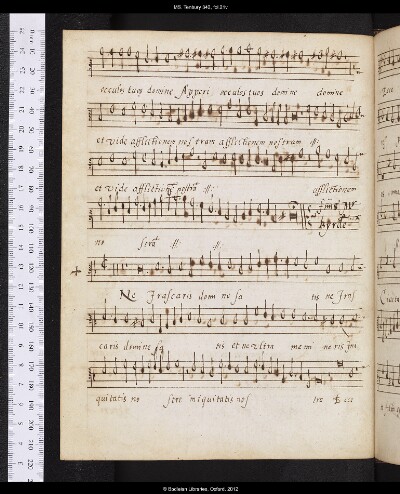 MS. Tenbury 342, fol.21v
occulos tuos domine Apperi occulos tuos domine domine
et vide afflictionem nostram afflictionem nostram :||:
et vide afflictionem nostrã :||: afflictionem
no strã :||: :||:
Ne Irascaris domine sa tis ne Iras
caris domine sa tis et ne ultra memi neris ini
quitatis no stre iniquitatis nos tre Ecce
© Bodleian Libraries, Oxford, 2012